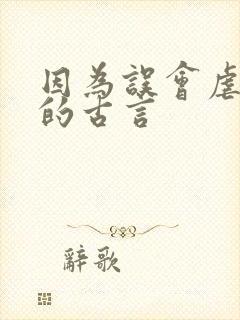 因為誤會虐
的古言
辭歌